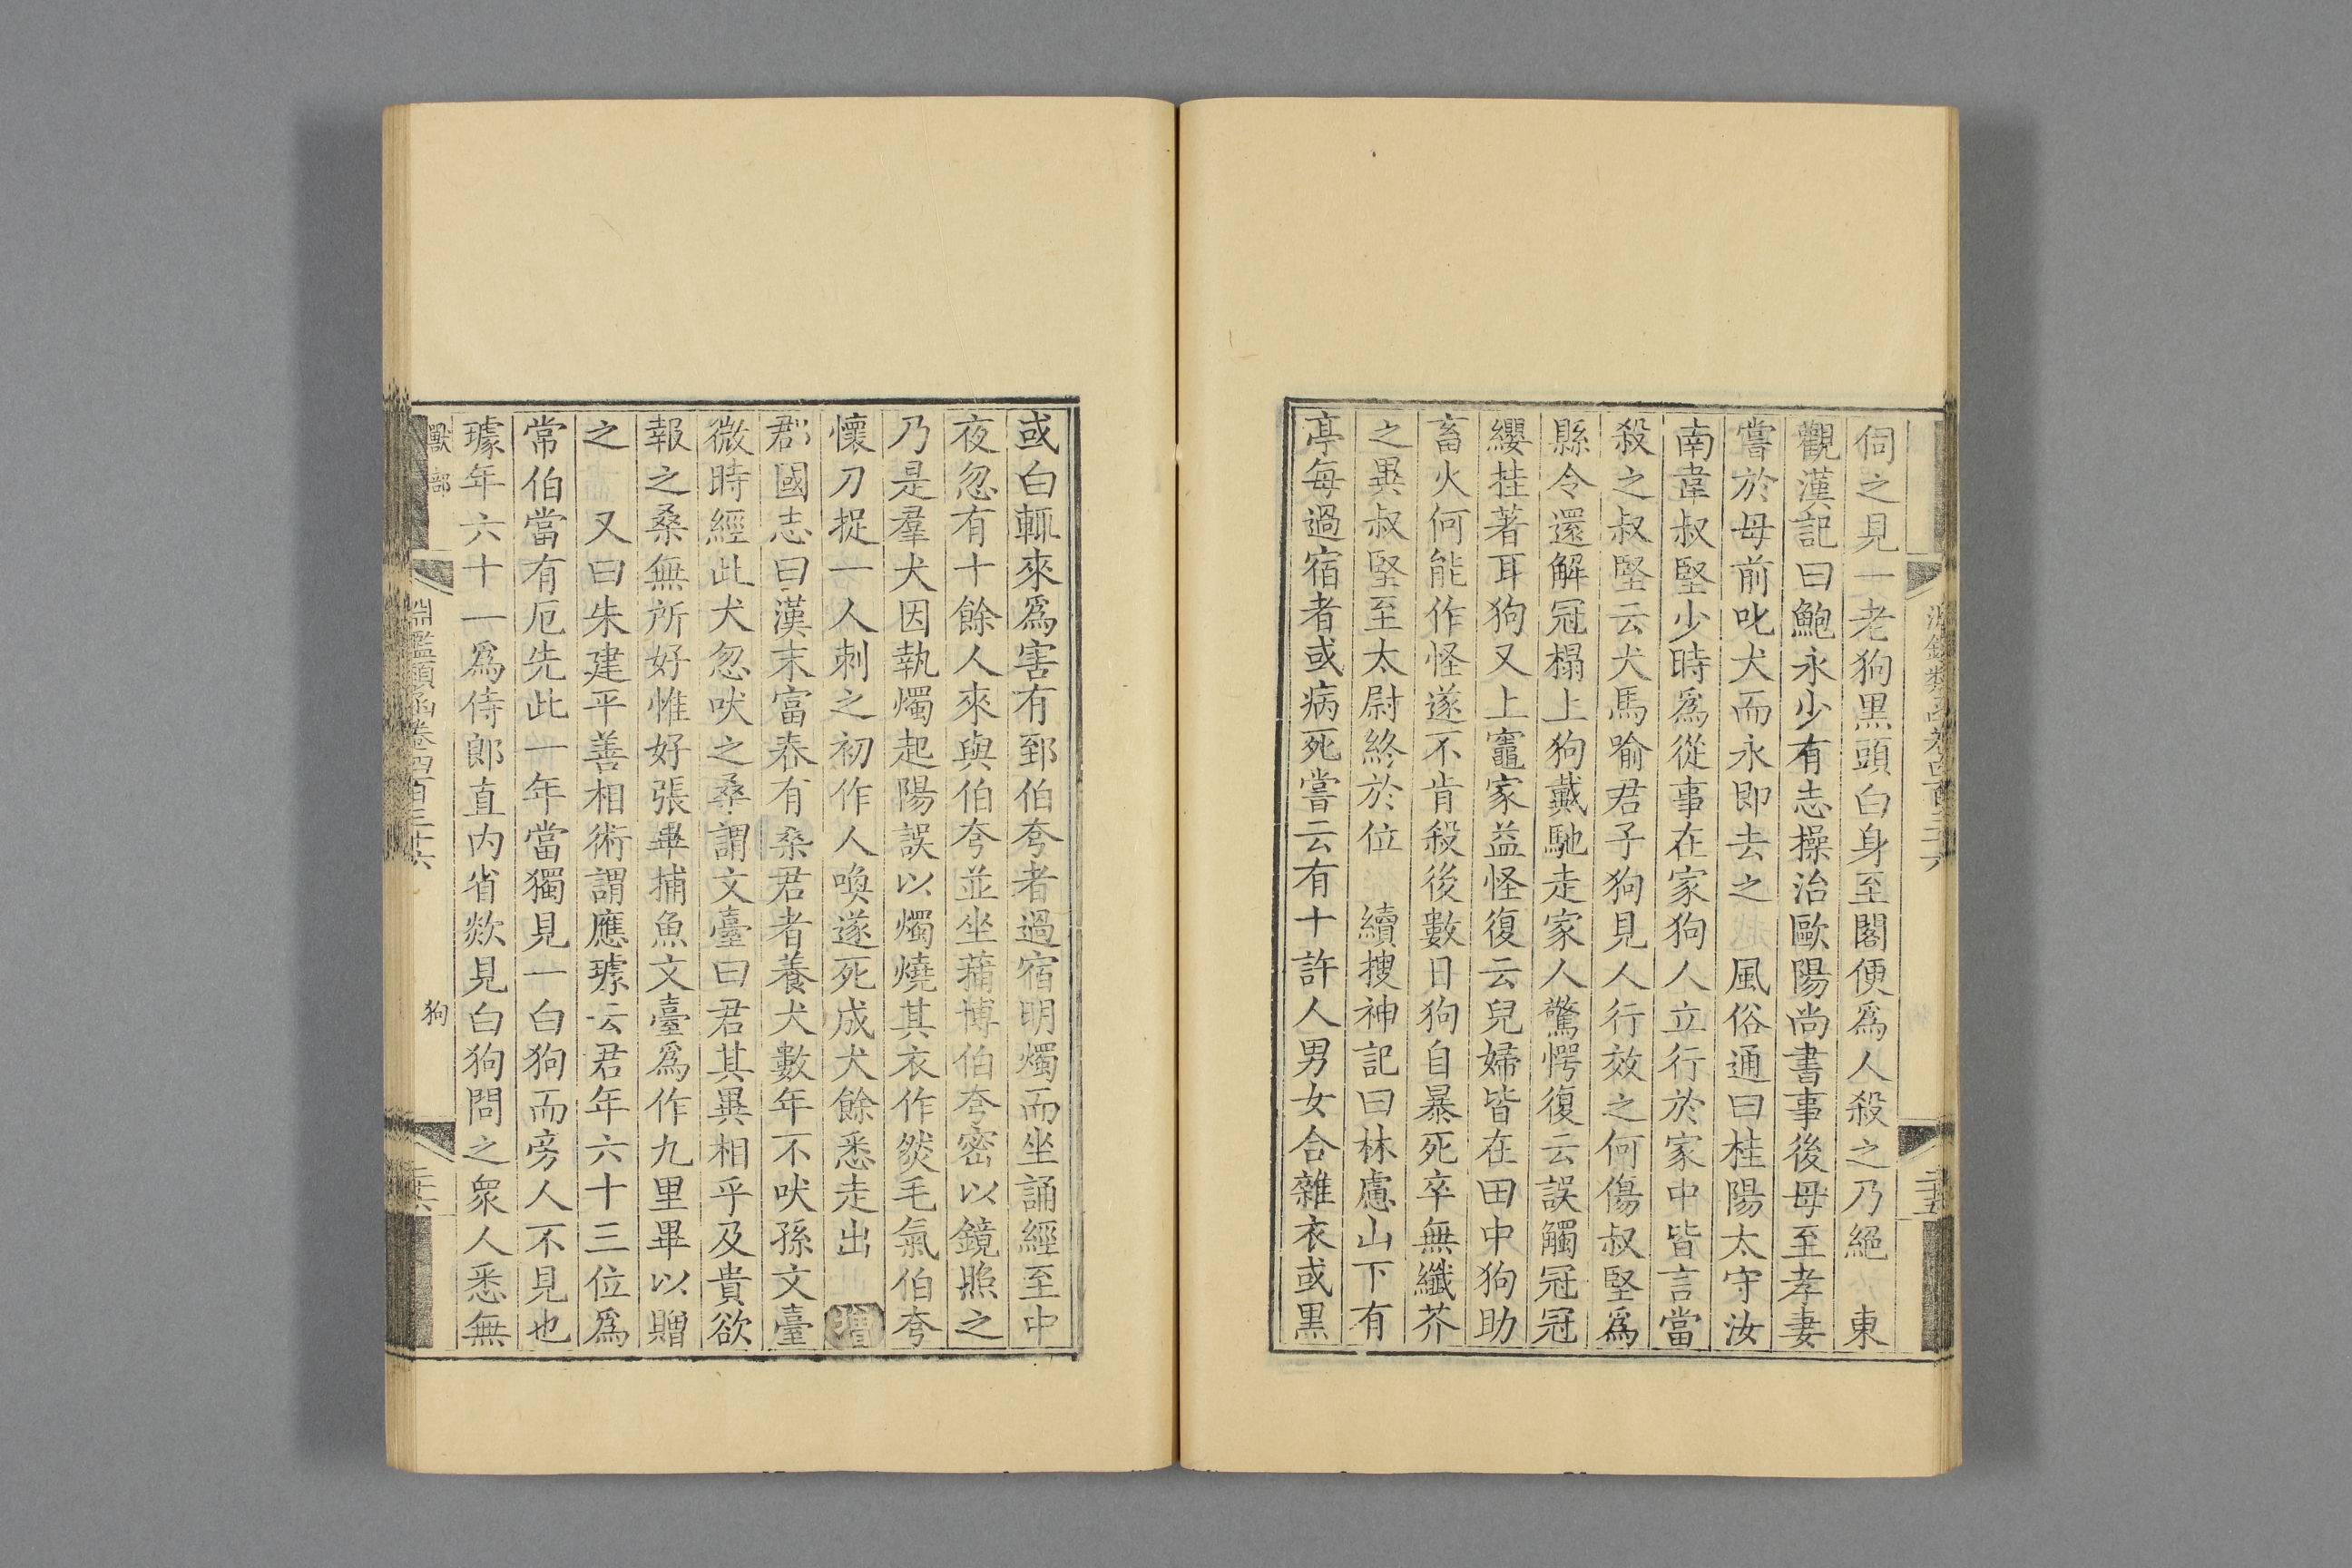 伺之見一老狗黒頭白身至閣便爲人殺之乃絕　東
觀漢記曰鮑永少有志操治歐陽尚書事後母至孝妻
嘗於母前叱犬而永即去之　風俗通曰桂陽太守汝
南韋叔堅少時爲從事在家狗人立行於家中皆言當
殺之叔堅云犬馬喻君子狗見人行效之何傷叔堅爲
縣令還解冠榻上狗戴馳走家人驚愕復云誤觸冠冠
纓挂著耳狗又上竈家益怪復云兒婦皆在田中狗助
畜火何能作怪遂不肯殺後數日狗自暴死卒無纖芥
之異叔堅至太尉終於位　續搜神記曰林慮山下有
亭每過宿者或病死嘗云有十許人男女合雜衣或黒
或白輒來爲害有郅伯夸者過宿明燭而坐誦經至中
夜忽有十餘人來與伯夸並坐蒱博伯夸密以鏡照之
乃是羣犬因執燭起陽誤以燭燒其衣作燃毛氣伯夸
懷刀捉一人刺之初作人喚遂死成犬餘悉走出　增
郡國志曰漢末富春有桑君者養犬數年不吠孫文臺
微時經此犬忽吠之桑謂文臺曰君其異相乎及貴欲
報之桑無所好惟好張罼捕魚文臺爲作九里罼以贈
之　又曰朱建平善相術謂應璩云君年六十三位爲
常伯當有厄先此一年當獨見一白狗而旁人不見也
璩年六十一爲侍郎直内省欻見白狗問之衆人悉無
獸部　淵鑑類函卷四百三十六　狗